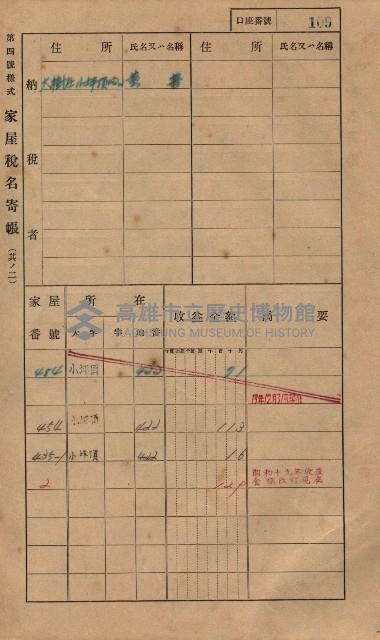 口座番號 109
第四號樣式 家屋稅名寄帳 (其ノ二)
住所 氏名又ハ名稱 住所 氏名又ハ名稱
納稅者
大樹庄小坪頂 黃
家屋番號 所在 收益金額 摘要
大字 地番
高雄市立歷史博物館
KAOHSIUNG MUSEUM OF HISTORY
454 小坪頂 422 91
454 小坪頂 422 113
435-1 小坪頂 422 16
2 129
昭和十九年收益
金額改訂